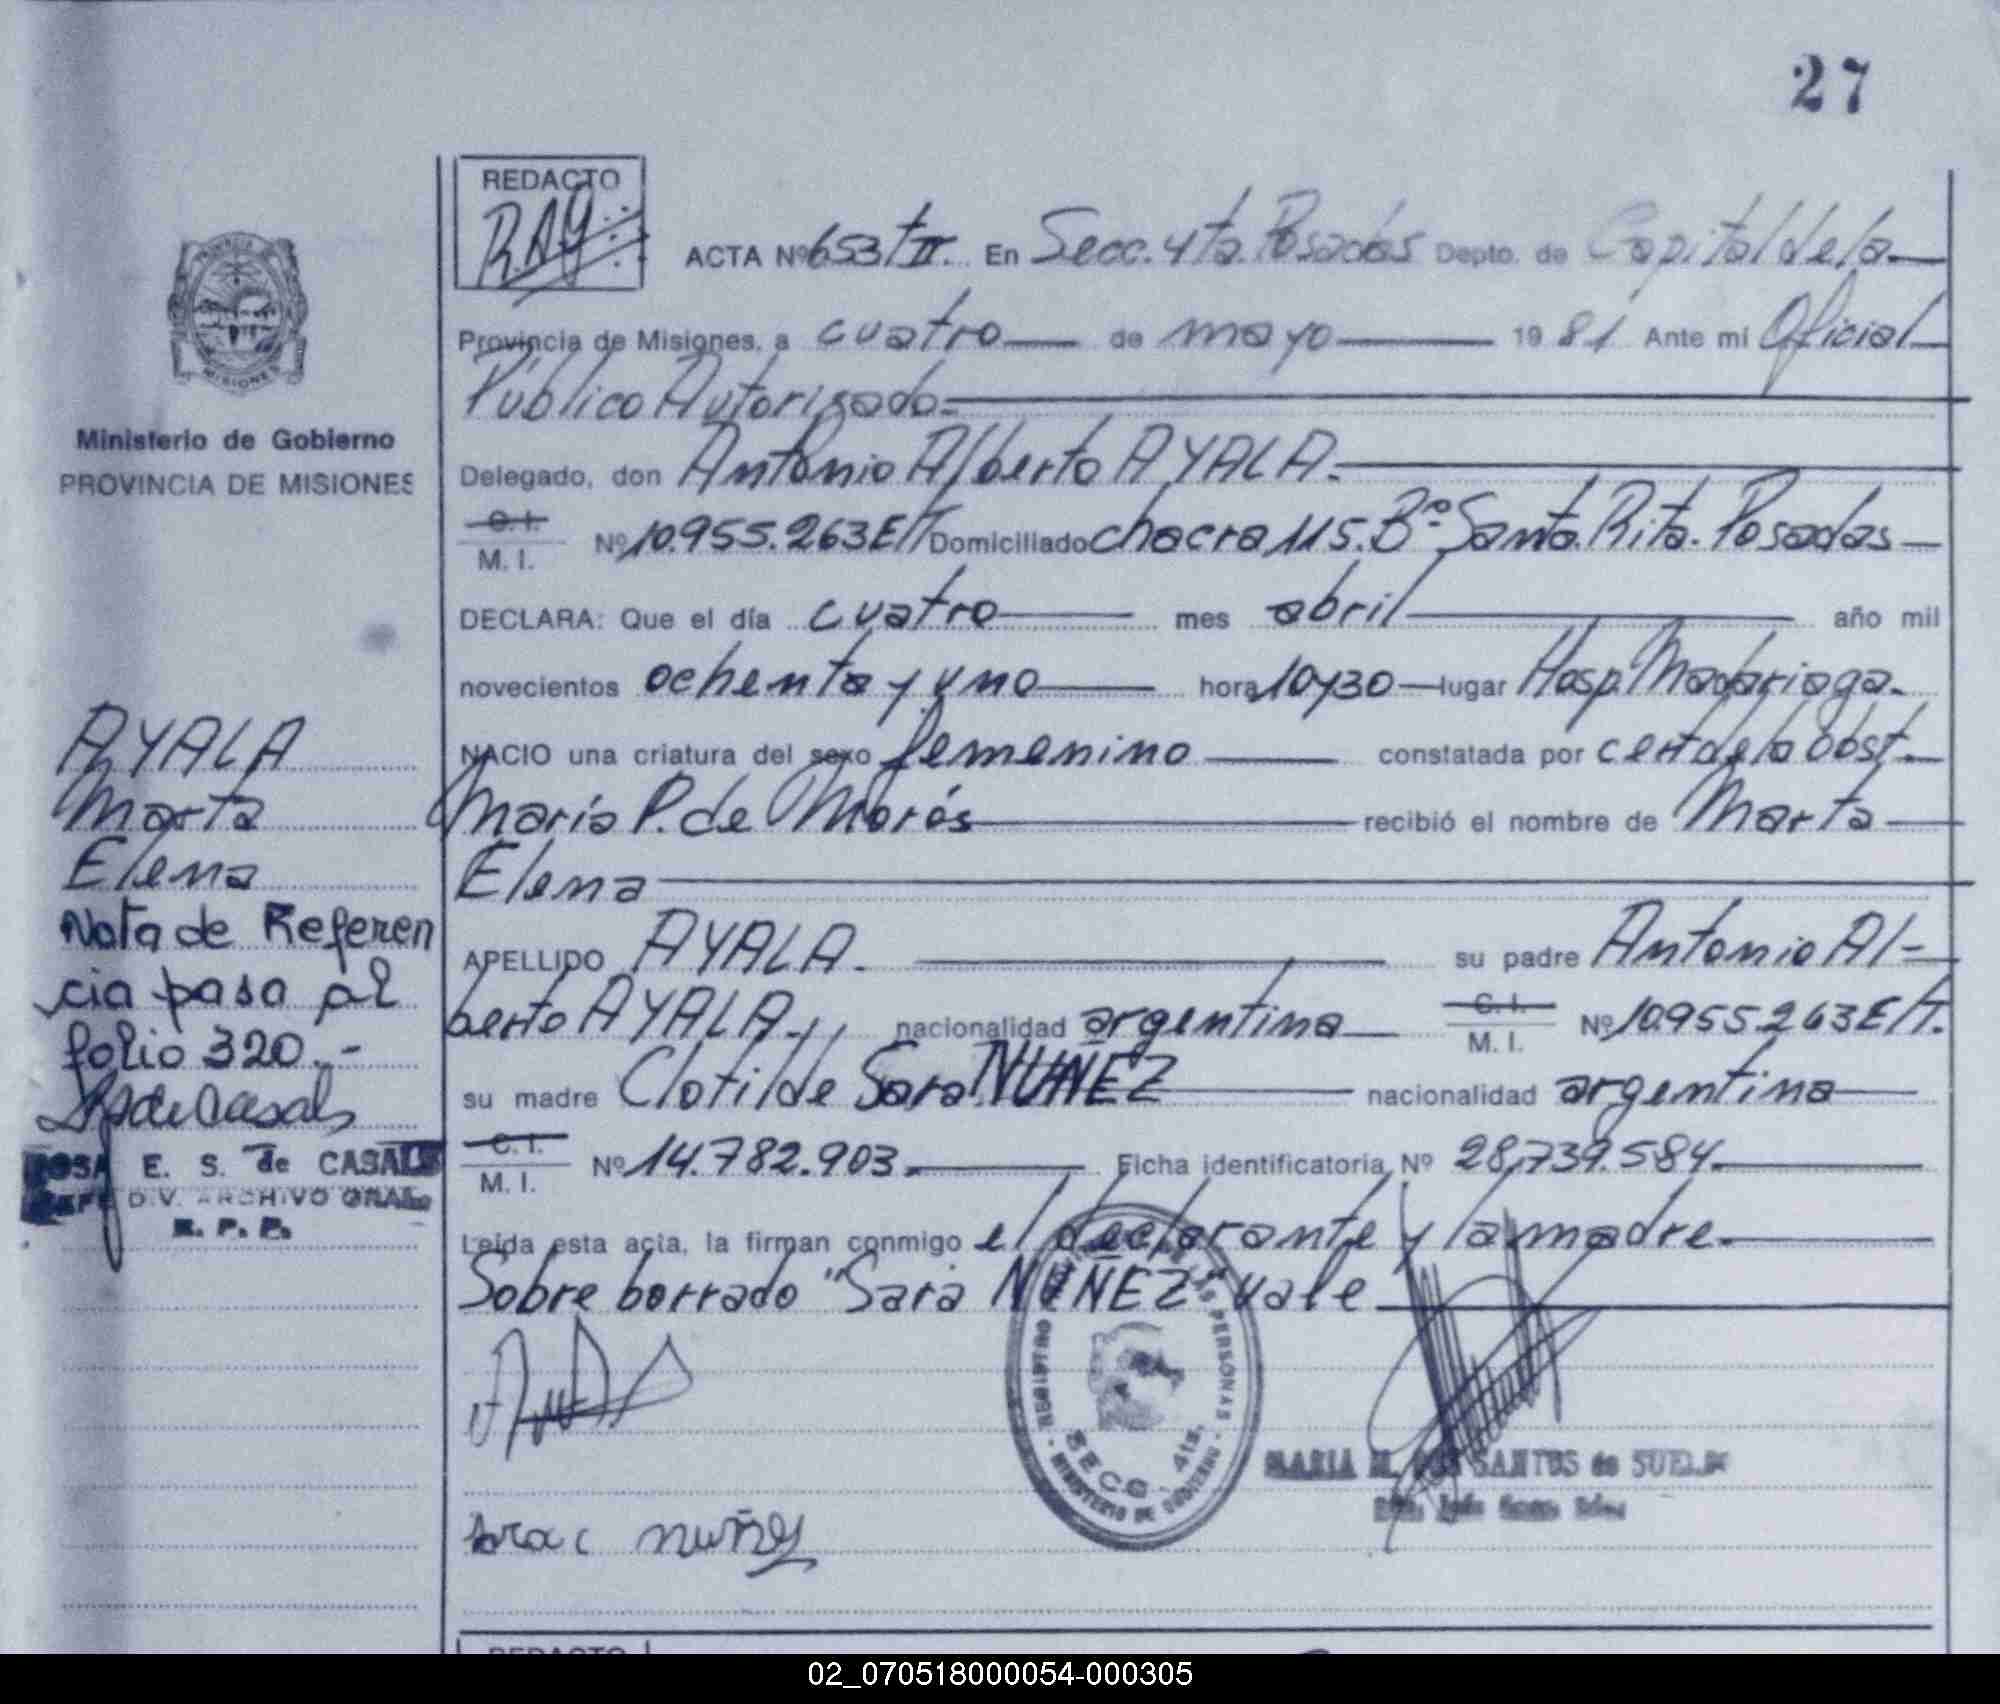 27
REDACTO
R.A.G.
ACTA Nº 653 T II. En Secc. 4ta. Posadas Depto. de Capital de la
Provincia de Misiones, a cuatro de mayo 1981 Ante mi Oficial
Público Autorizado.
Delegado, don Antonio Alberto AYALA.
C. I.
M. I. Nº 10.955.263 E/T Domiciliado chacra 115. Bº Santa Rita. Posadas
DECLARA: Que el día cuatro mes abril año mil
novecientos ochenta y uno hora 10y30 lugar Hosp. Madariaga.
NACIO una criatura del sexo femenino constatada por cert de la Obst.
María P. de Morés recibió el nombre de Marta
Elena
APELLIDO AYALA. su padre Antonio Al-
berto AYALA., nacionalidad argentina C. I. M. I. Nº 10.955.263 E/T.
su madre Clotilde Sara NUÑEZ nacionalidad argentina
C. I.
M. I. Nº 14.782.903. Ficha identificatoria Nº 28,739.584.
Leída esta acta, la firman conmigo el declarante y la madre.
Sobre borrado "Sara NUÑEZ" vale
REGISTRO PERSONAS
SECC. 4ta.
MINISTERIO DE GOBIERNO
MARIA M. SANTOS de
nuñez
PROVINCIA
MISIONES
Ministerio de Gobierno
PROVINCIA DE MISIONES
AYALA
Marta
Elena
Nota de Referen
cia pasa al
folio 320.-
de Casals
ROSA E. S. de CASALS
JEFE DIV. ARCHIVO GRAL.
R. P. P.
REDACTO
02_070518000054-000305